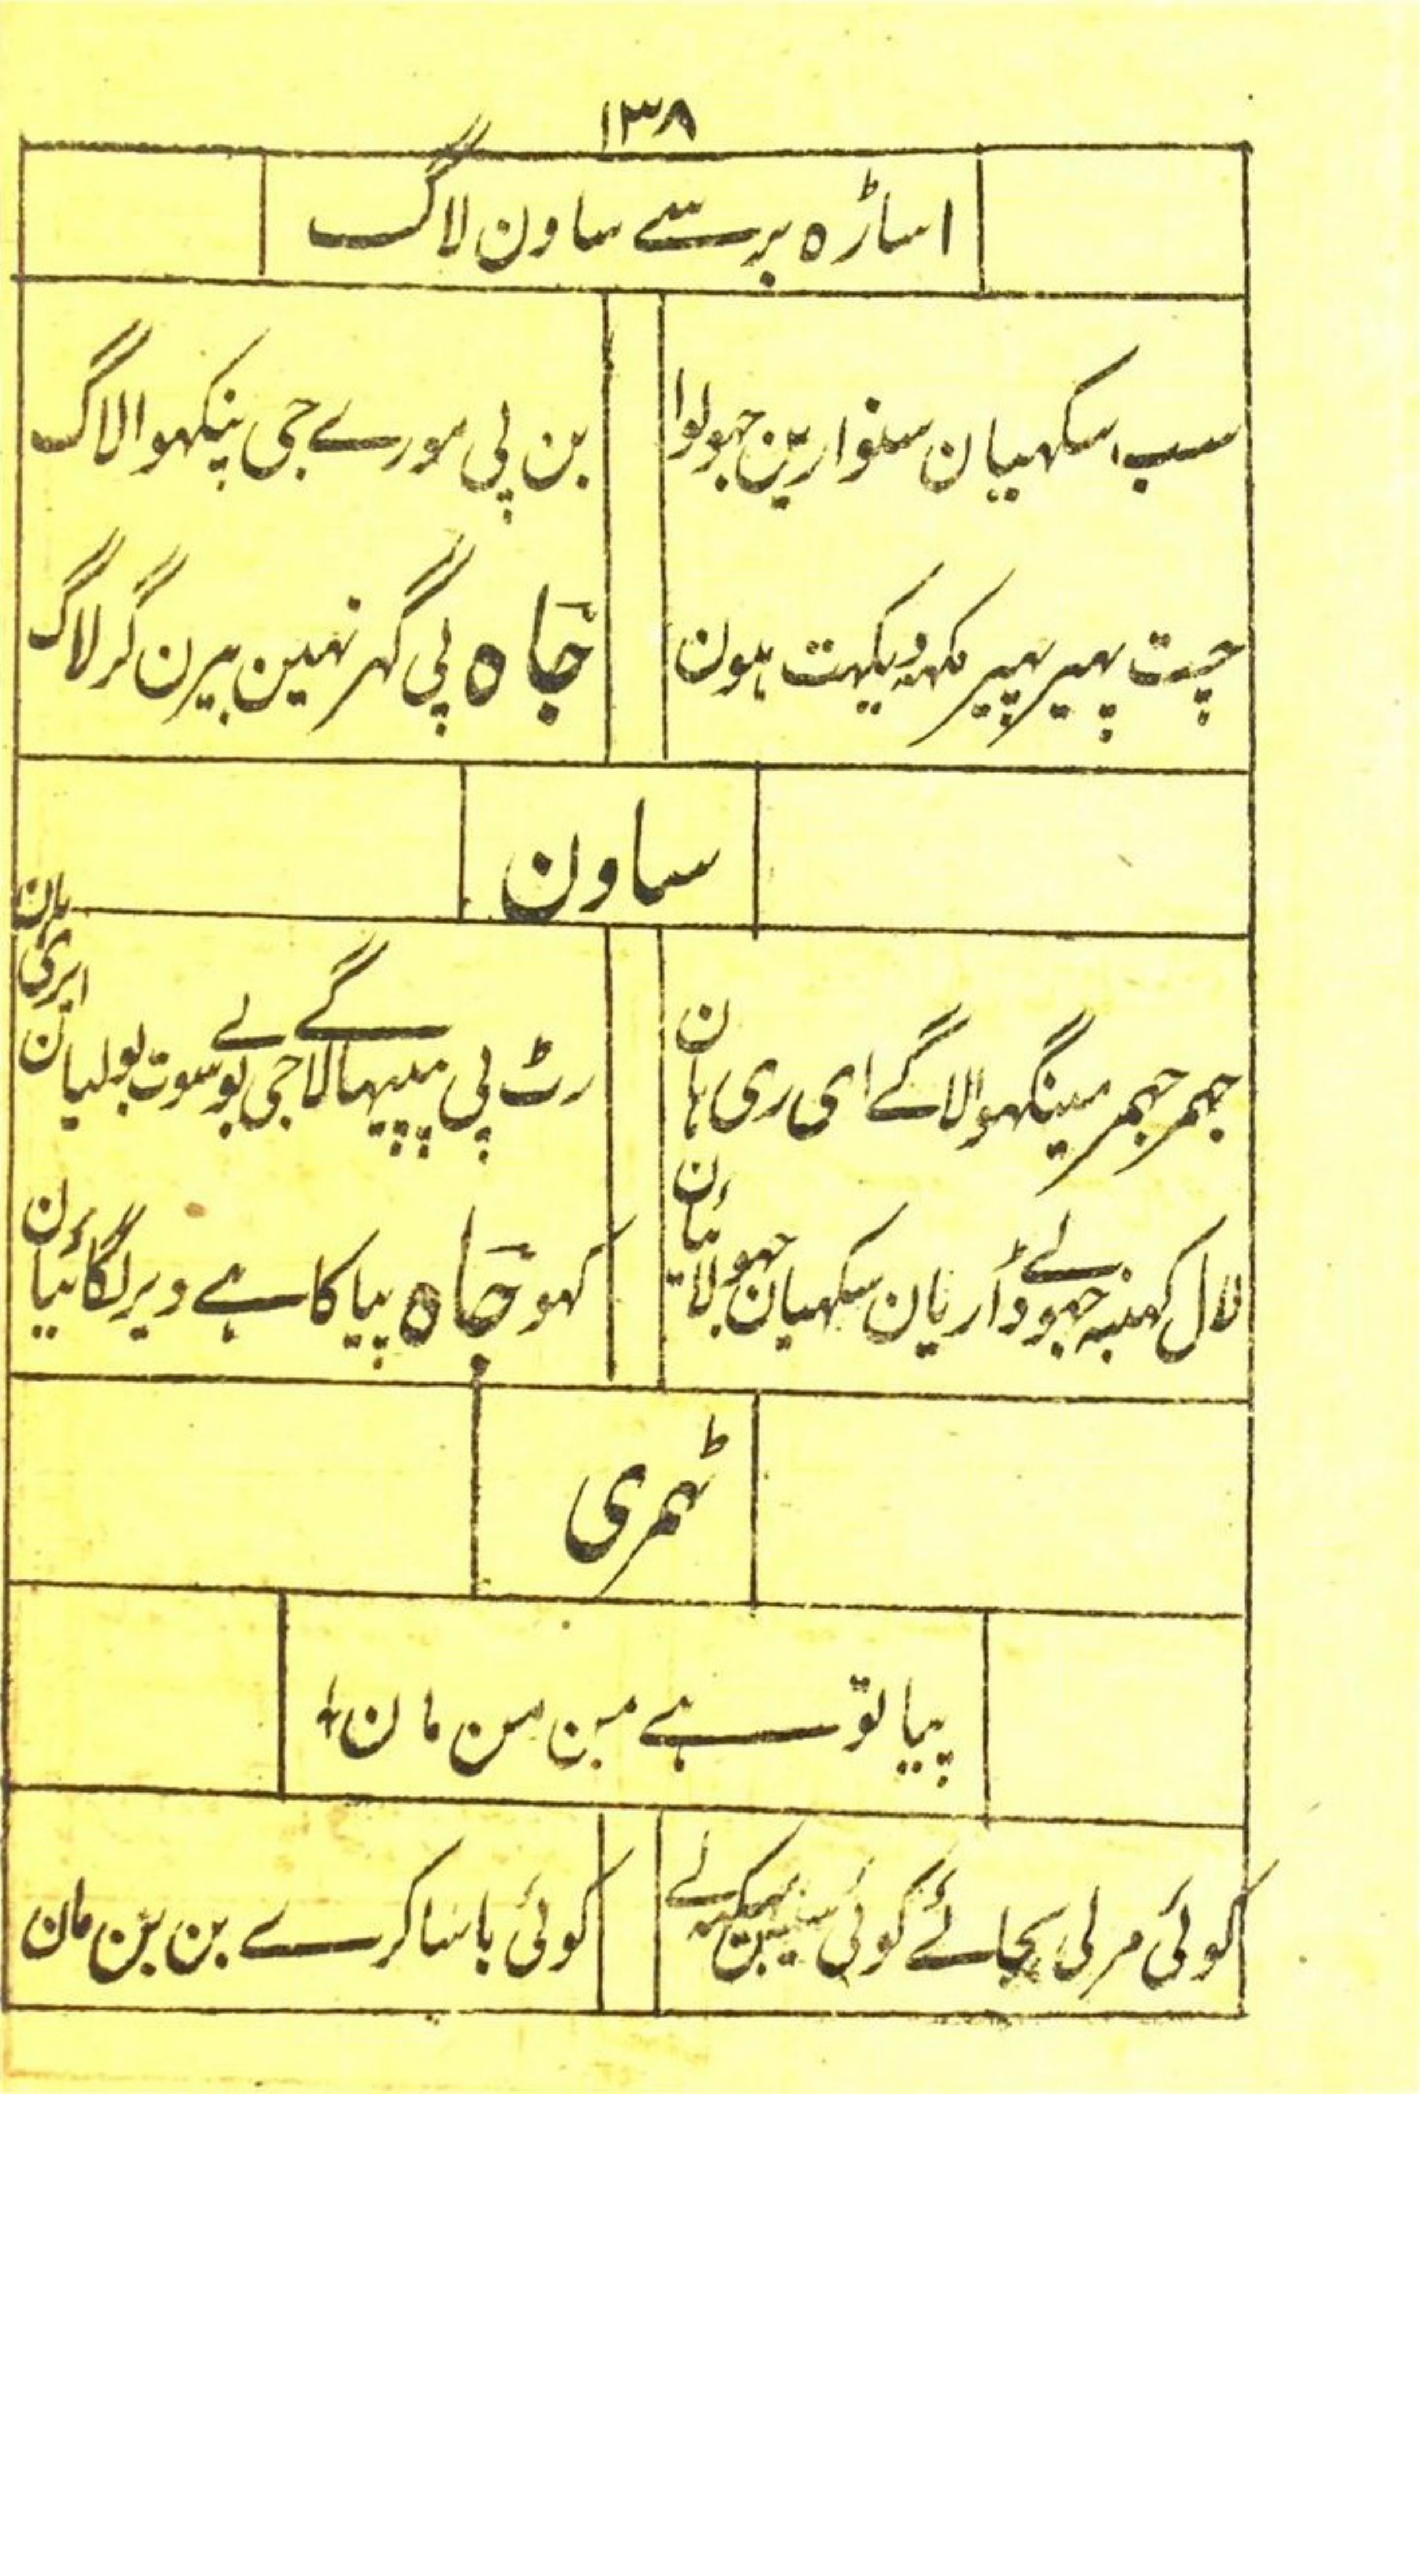 ۱۳۸
اساڑہ برسے ساون لاگ
سب سکھیان سنوارین جہولوا
بن پی مورے جی پنکھوا لاگ
چت پہیر پہیر مکہہ دیکہت ہون
جاہ پی گہر نہین بیرن گر لاگ
ساون
جہمر جہمر مینگہوا لاگے ای ری ہان
رٹ پی پپیہا لاگے جی بولے سوت بولیان ایری ہان
لال کہنبہ جہولے ڈاریان سکہیان جہولائیان
کہو جاہ پیا کاہے دیر لگائیان
ٹہمری
پیا تو ہے بن من مان
کوئی مرلی بجائے کوئی سین
کوئی باسا کرے بن بن مان